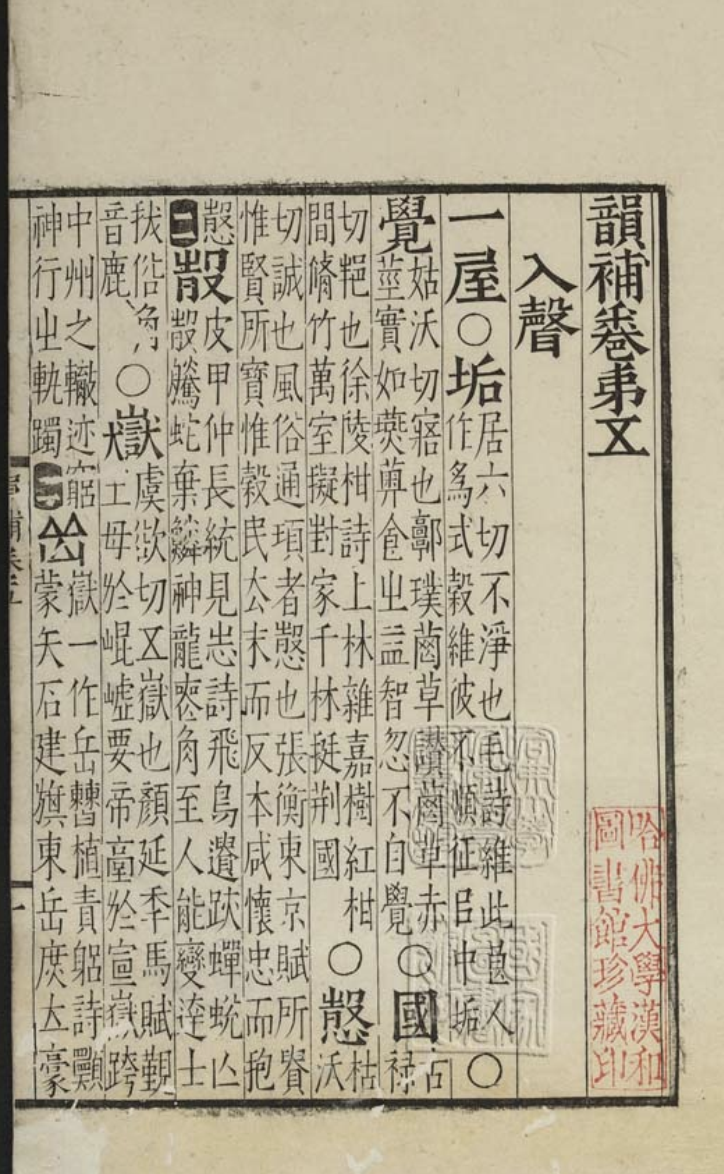 韻補卷弟五
入聲
一屋○垢居六切不淨也毛詩維此惪人
作爲式穀維彼不順征㠯中垢○
覺姑沃切寤也郭璞䓖草讚䓖草赤
莖實如蘡薁食㞢益智忽不自覺○國古
祿
切邦也徐陵柑詩上林雜嘉樹紅柑
間脩竹萬室擬對家千林挺荆國○愨枯
沃
切誠也風俗通項者愨也張衡東京賦所貴
惟賢所寶惟穀民去末而反本咸懷忠而抱
愨
二㱿皮甲仲長統見志詩飛鳥遺跡蟬蛻亾
㱿騰蛇棄鱗神龍喪角至人能變達士
拔俗角
音鹿○嶽虞欲切五嶽也顏延年馬賦覲
王母於崐墟要帝臺於宣嶽跨
中州之轍迹窮
神行㞢軌躅二岳嶽一作岳植責躬詩願
蒙矢石建旗東岳庶立豪
哈佛大學漢和
圖書館珍藏印